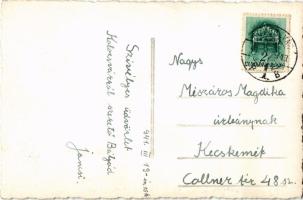 Szívélyes üdvözlet
Kolozsvárról szerető Bátyád
Jancsi.
941. III 19-én
Nagys
Mészáros Magdika
úrleánynak
Kecskemét
Collner tér 48 sz.